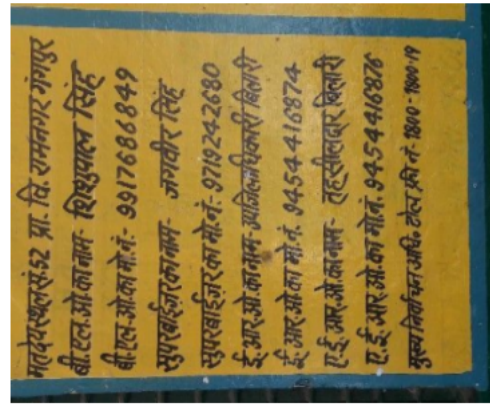 मतदेय स्थल सं. 52 प्रा. वि. रामनगर गंगपुर
बी.एल.ओ. का नाम- शिशुपाल सिंह
बी.एल.ओ. का मो.नं:- 9917686849
सुपरवाईजर का नाम- जगवीर सिंह
सुपरवाईज़र का मो.नं:- 9719242680
ई.आर.ओ. का नाम- उपजिलाधिकारी बिलारी
ई.आर.ओ. का मो.नं. 9454416874
ए.ई.आर.ओ. का नाम- तहसीलदार बिलारी
ए.ई.आर.ओ. का मो.नं. 9454416876
मुख्य निर्वाचन अधि. टोल फ्री नं- 1800-1800-19